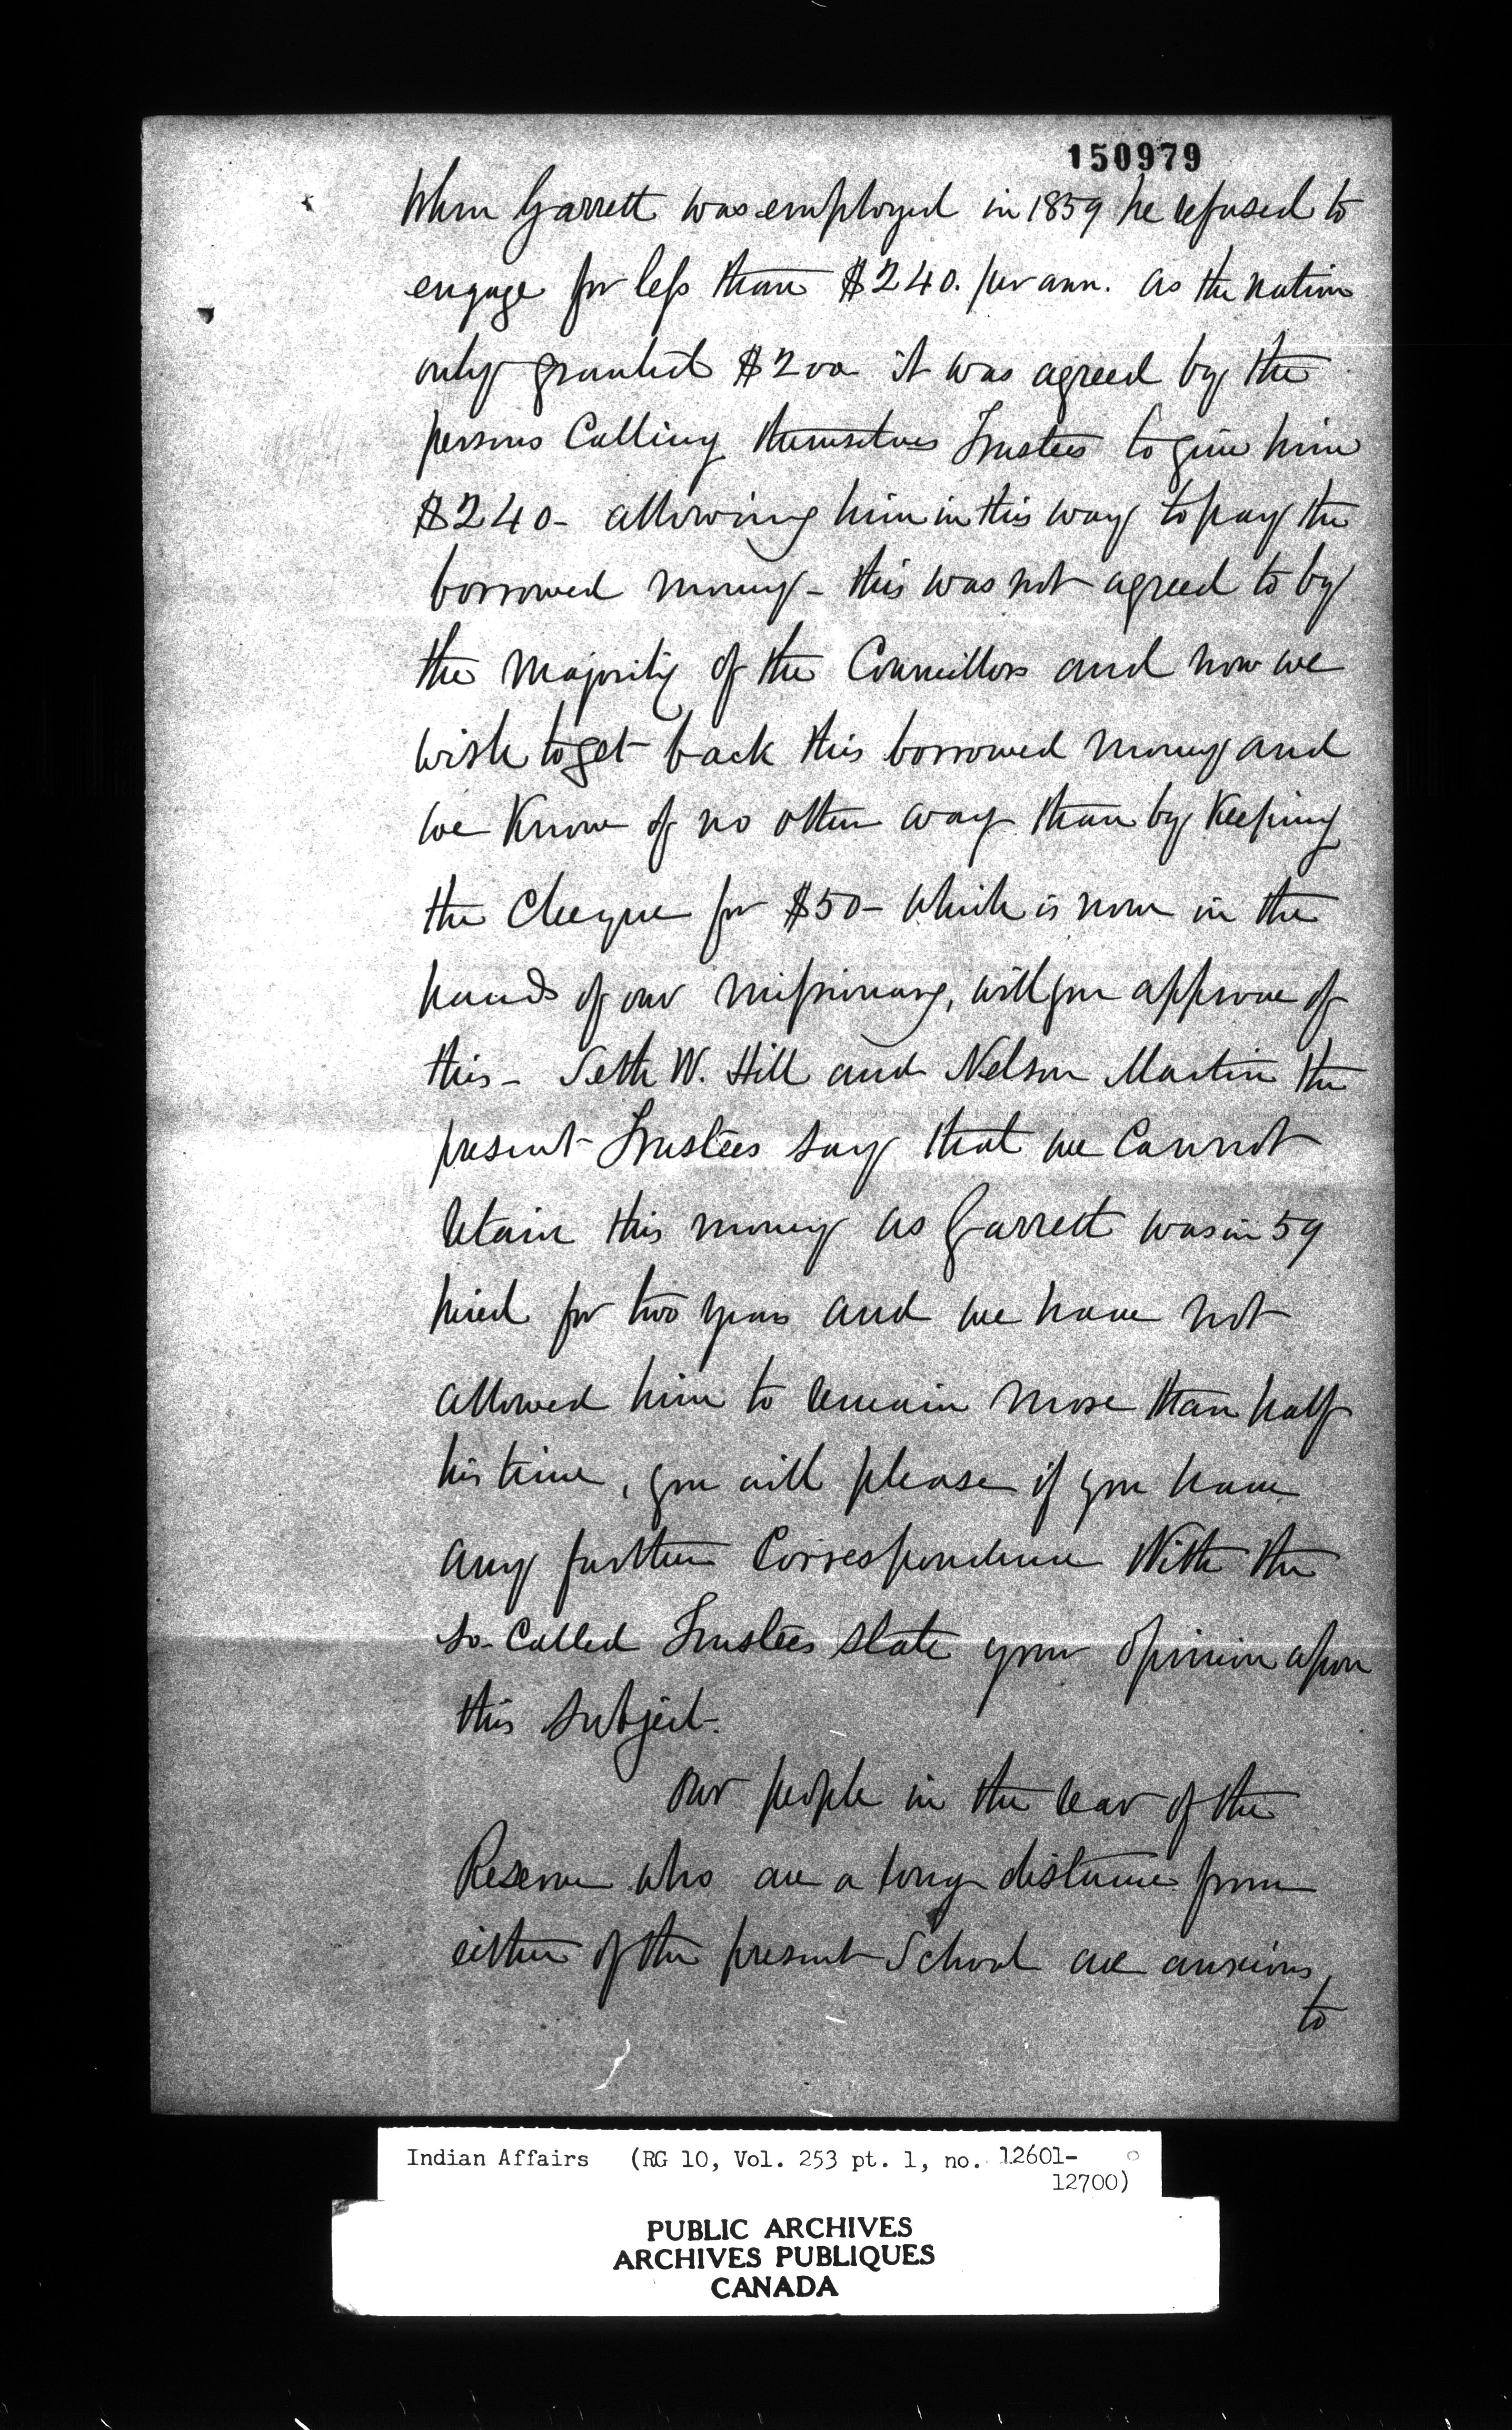 150979
When Garrett was employed in 1859 he refused to
engage for less than $240. per ann. as the nation
only granted $200 it was agreed by the
persons Calling themselves Trustees to give him
$240 - allowing him in this way to pay the
borrowed money - this was not agreed to by
the Majority of the Councillors and now we
wish to get back this borrowed money and
we Know of no other way than by Keeping
the Cheque for $50 - which is now in the
hands of our Missionary, will you approve of
this - Seth W. Hill and Nelson Martin the
present Trustees say that we Cannot
retain this money as Garrett was in 59
hired for two years and we have not
allowed him to remain more than half
his time, you will please if you have
any further Correspondence With the
so-Called Trustees state your opinion upon
this subject.
Our people in the rear of the
Reserve who are a long distance from
either of the present School are anxious,
to
Indian Affairs (RG 10, Vol. 253 pt. 1, no. 12601-
12700)
PUBLIC ARCHIVES
ARCHIVES PUBLIQUES
CANADA